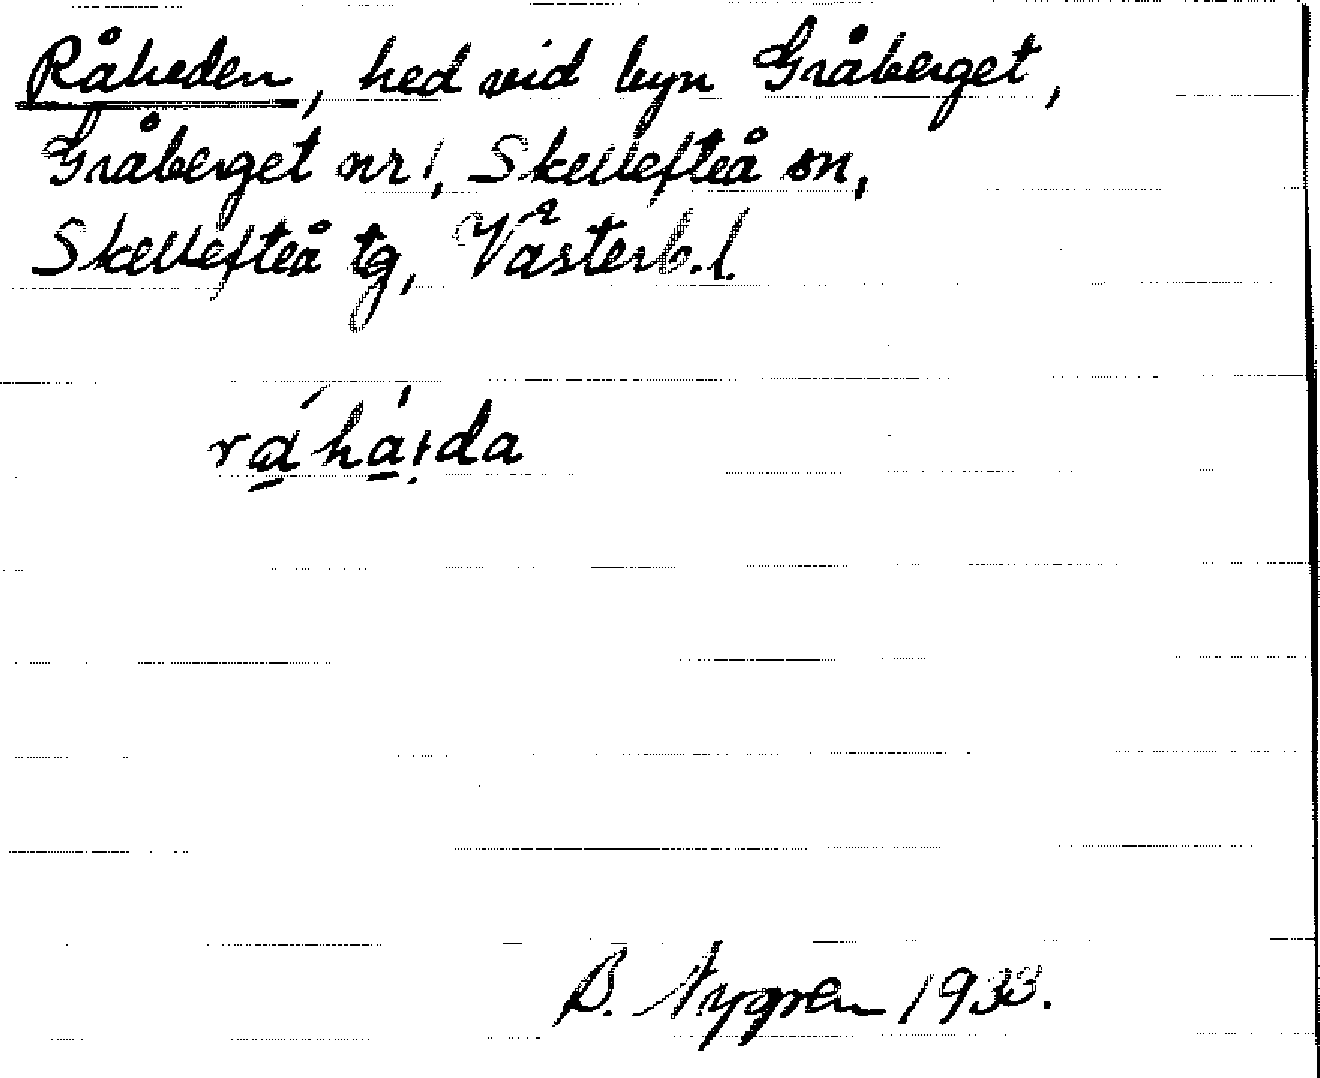 Råheden, hed vid byn Gråberget,
Gråberget nr 1, Skellefteå sn,
Skellefteå tg, Västerb.l.
ráháida
B. Nygren 1933.